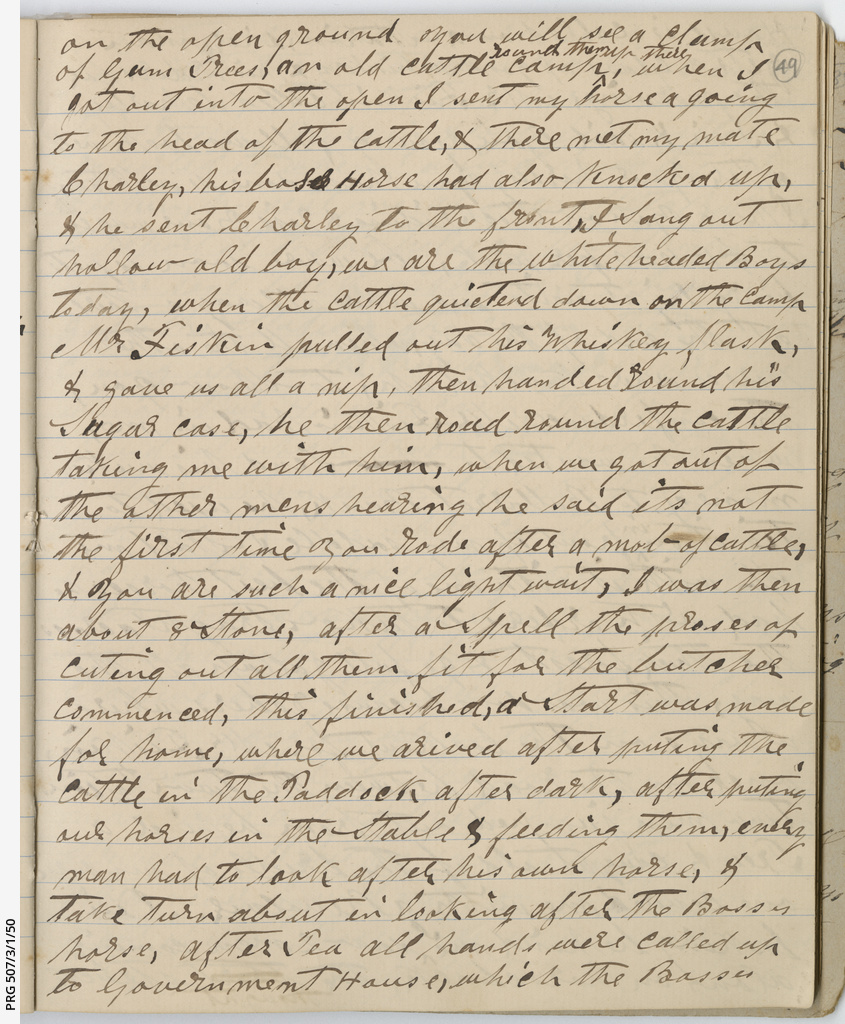 on the open ground you will see a clump
round them up there
of Gum Trees, an old cattle camp, when I
49
got out into the open I sent my horse a going
to the head of the cattle, & there met my mate
Charley, his boss Horse had also Knocked up,
& he sent Charley to the front, I Sang out
hollow old boy, we are the white headed Boys
today, when the cattle quietend down on the camp
Mr Fiskin pulled out his Whiskey flask,
& gave us all a nip, then handed round his
Sugar case, he then road round the cattle
taking me with him, when we got out of
the other mens hearing he said its not
the first time you rode after a mob of cattle,
& you are such a nice light wait, I was then
about 8 Stone, after a Spell the proses of
cuting out all them fit for the butcher
commenced, this finished, a Start was made
for home, where we arived after puting the
cattle in the Paddock after dark, after puting
our horses in the Stable & feeding them, every
man had to look after his own horse, &
take turn about in looking after the Bosses
horse, after Tea all hands were called up
to Government House, which the Bosses
PRG 507/3/1/50